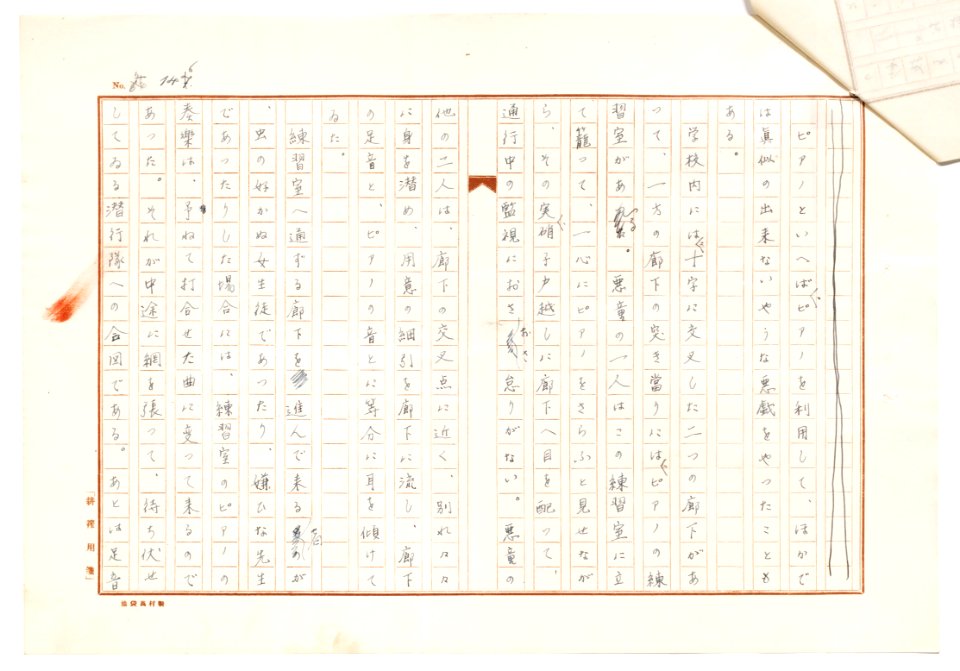 No. 14
ピアノといへばピアノを利用して、ほかで
は真似の出来ないやうな悪戯をやつたことも
ある。
学校内には十字に交叉した二つの廊下があ
つて、一方の廊下の突き当りにはピアノの練
習室がある。悪童の一人はこの練習室に立
て籠つて、一心にピアノをさらふと見せなが
ら、その実硝子戸越しに廊下へ目を配つて、
通行中の監視におさおさ怠りがない。悪童の
他の二人は、廊下の交叉点に近く、別れ々々
に身を潜め、用意の細引を廊下に流し、廊下
の足音と、ピアノの音とに等分に耳を傾けて
ゐた。
練習室へ通ずる廊下を進んで来る者が
、虫の好かぬ女生徒であつたり、嫌ひな先生
であつたりした場合には、練習室のピアノの
奏楽は、予ねて打合せた曲に変つて来るので
あつた。それが中途に網を張つて、待ち伏せ
してゐる潜行隊への合図である。あとは足音
「耕稼用箋」
池袋高村製